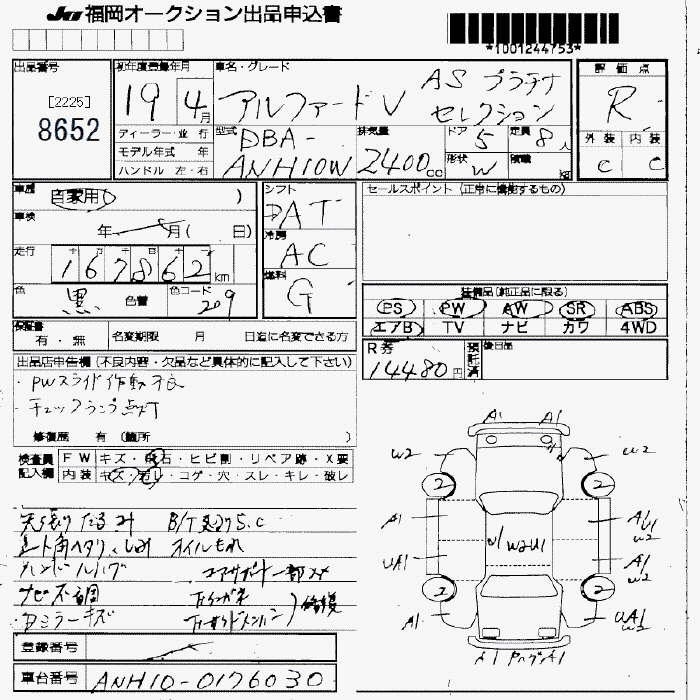 JU 福岡オークション出品申込書
*1001244753*
出品番号
[2225]
8652
初年度登録年月
19 4月
車名・グレード
アルファードV
AS プラチナ
セレクション
評価点
R
外装 内装
C C
ディーラー・並行
モデル年式 年
ハンドル 左・右
型式
DBA-
ANH10W
排気量
2400cc
ドア
5
形状
W
定員
8人
積載
kg
車歴
自家用( )
車検
年 月( 日)
走行
167862km
色
黒
色替
色コード
209
シフト
DAT
冷房
AC
燃料
G
セールスポイント (正常に機能するもの)
装備品(純正品に限る)
PS PW AW SR ABS
エアB TV ナビ カワ 4WD
保証書
有・無
名変期限 月 日迄に名変できる方
R券
14480円
預託済
後日品
出品店申告欄(不良内容・欠品など具体的に記入して下さい)
・PWスライド作動不良
・チェックランプ点灯
修復歴 有 (箇所 )
検査員記入欄
FW キズ・飛石・ヒビ割・リペア跡・X要
内装 キズ・汚レ・コゲ・穴・スレ・キレ・破レ
天張りたるみ B/T S.C
シート角ヘタリ、しみ オイルもれ
ハンドルハゲ コアサポート一部
ナビ不調
Rミラーキズ 修復
登録番号
車台番号 ANH10-0176030
A1 A1
W2 W2
2 2
A1 A1 U1 W2
U1 W2U1
UA1 A1 W2
2 2
A1 UA1 W2
A1 A1